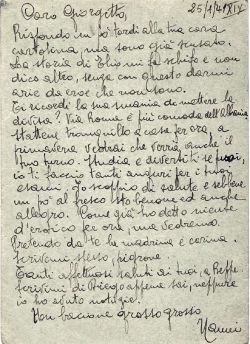 25/1/41 XIX
Caro Giorgetto,
Rispondo un po' tardi alla tua cara
cartolina, ma sono già scusato.
La storia di Tolio mi fa schifo e non
dico altro, senza con questo darmi
arie da eroe che non sono.
Ti ricordi la tua smania di mettere la
divisa? Via Roma è più comoda dell'Albania
stattene tranquillo a casa per ora, a
primavera vedrai che verrà anche il
tuo turno. Studia e divertiti se puoi,
io ti faccio tanti auguri per i tuoi
esami. Io scoppio di salute e sebbene
un po' al fresco sto benone ed anche
allegro. Come già ho detto niente
d'erotico per ora, ma vedremo.
Prebendo da te la madrina e carina.
Scrivimi spesso, pigrone
Tanti affettuosi saluti ai tuoi, a Beppe
Scrivimi di Diego appena sai, neppure
io ho avuto notizie.
Un bacione grosso grosso
Nanni